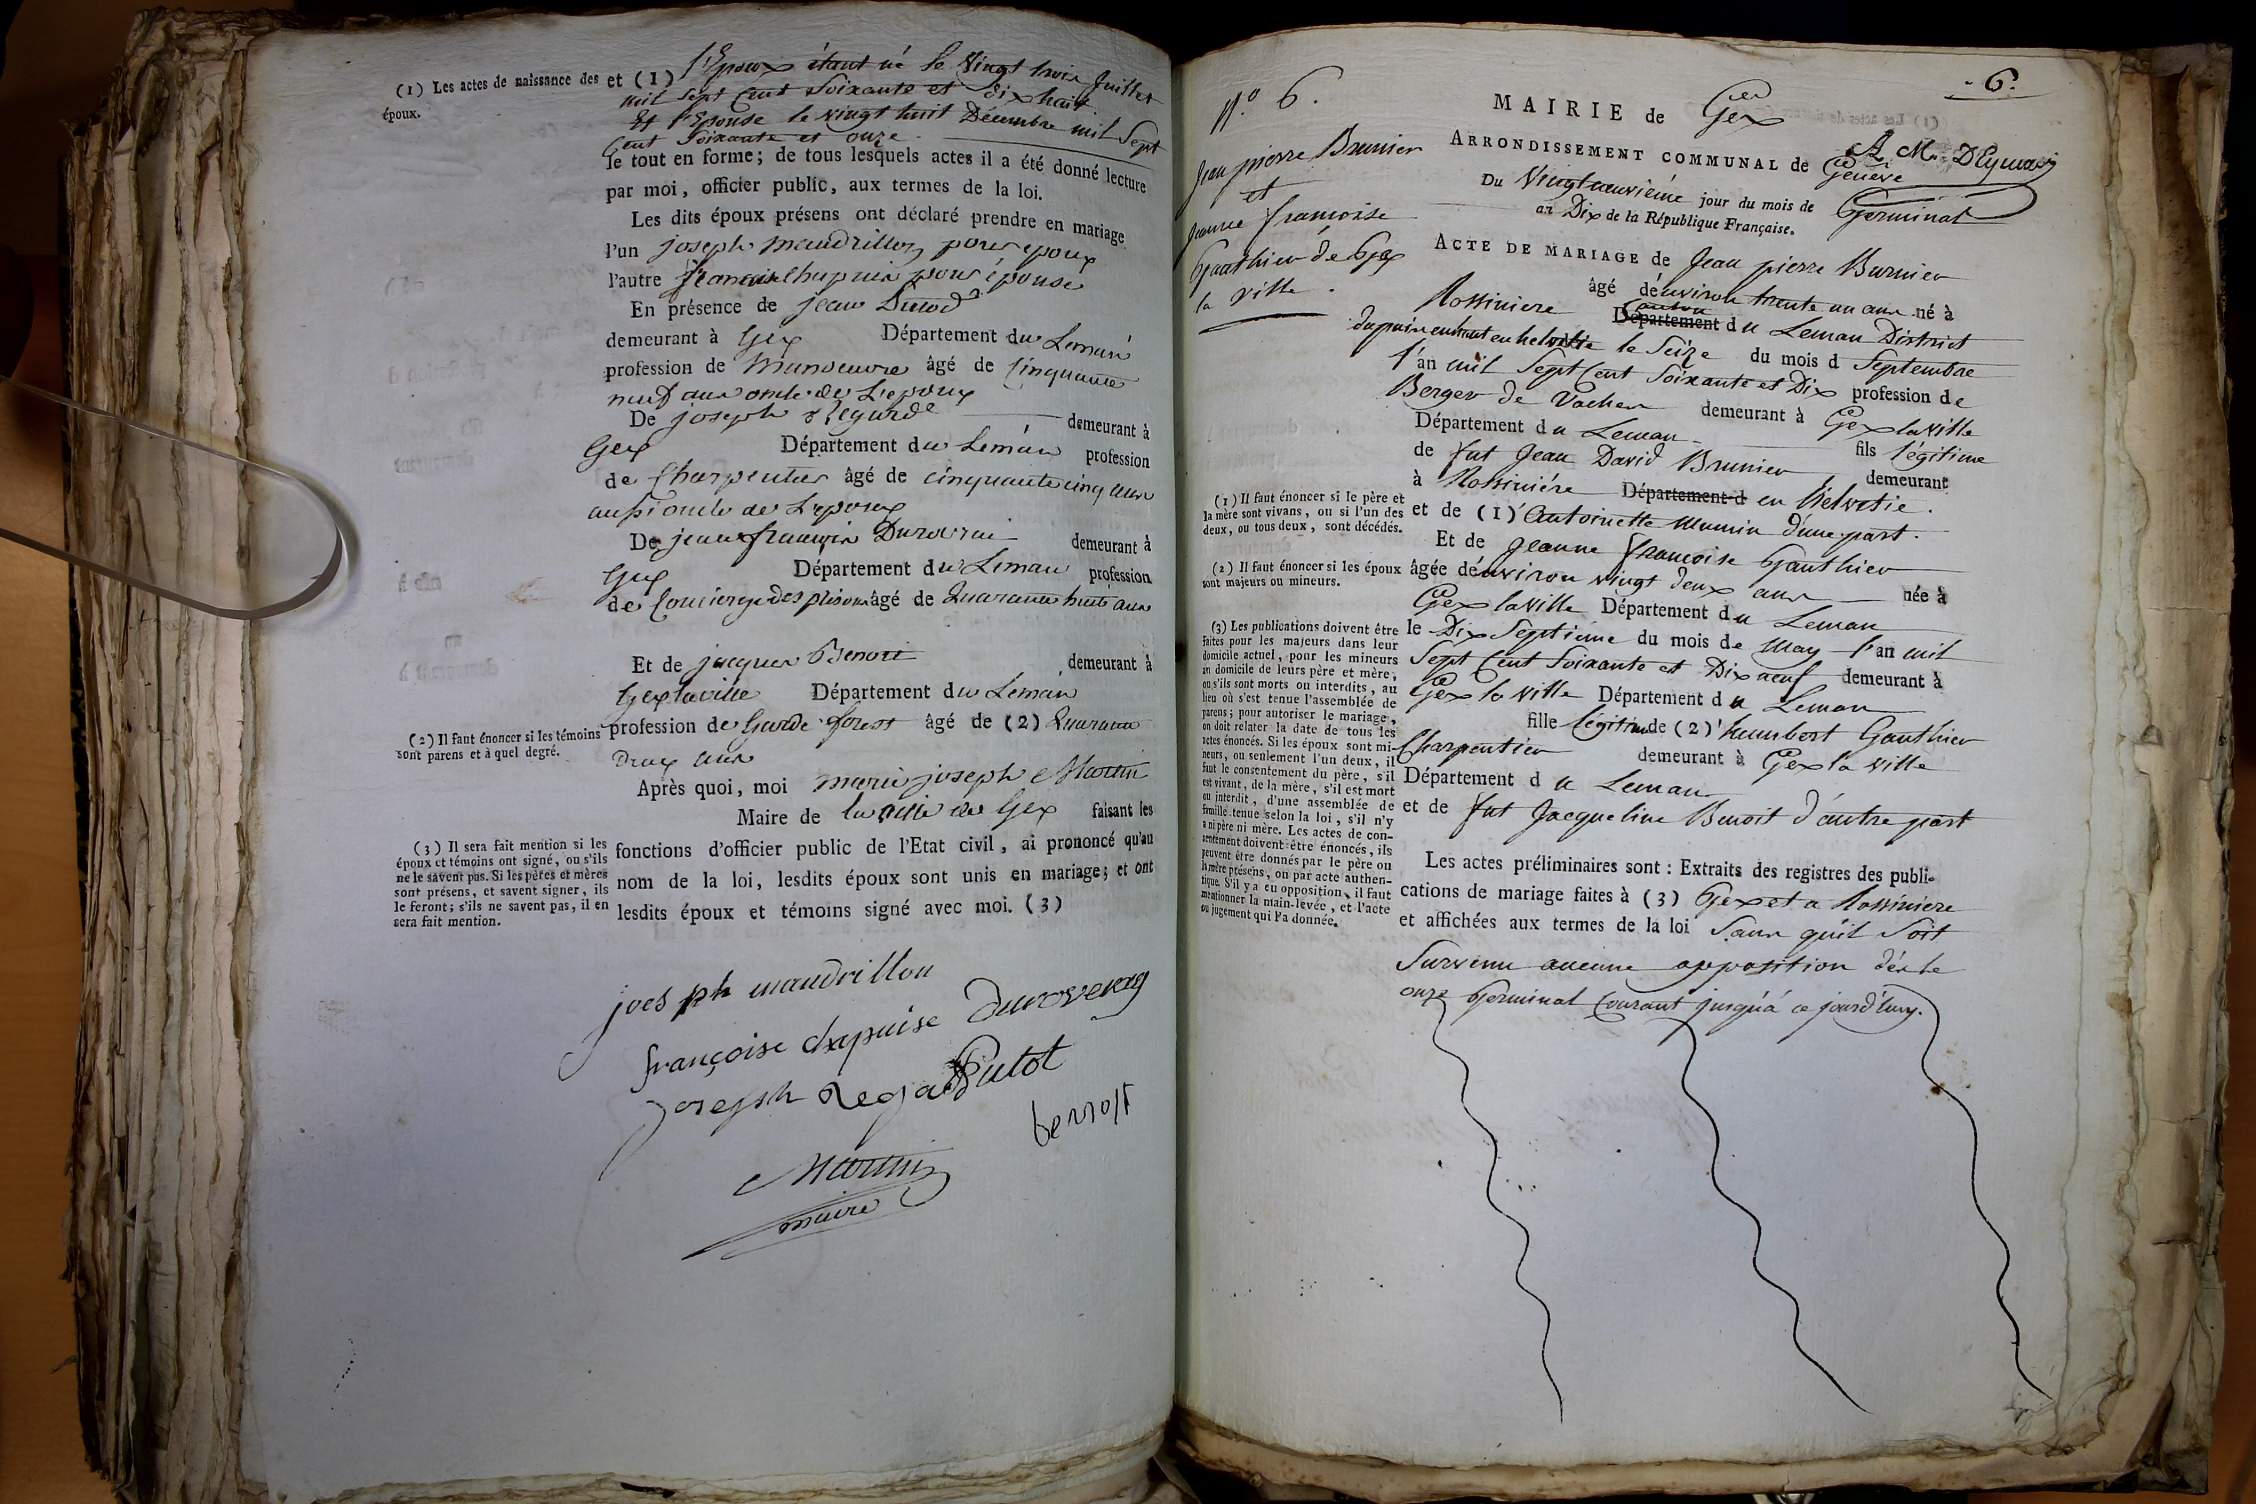 (1) Les actes de naissance des
époux.
et (1) l'Epoux étant né le Vingt trois Juillet
mil Sept Cent Soixante et dix huit
Et l'Epouse le vingt huit Décembre mil Sept
Cent Soixante et onze
le tout en forme; de tous lesquels actes il a été donné lecture
par moi, officier public, aux termes de la loi.
Les dits époux présens ont déclaré prendre en mariage
l'un joseph mandrillon pour epoux
l'autre francoise Chapuis pour épouse
En présence de jean
demeurant à Gex Département du Leman
profession de Manoeuvre âgé de Cinquante
neuf ans oncle de L'epoux
De joseph Regard demeurant à
Gex Département du Leman profession
de Charpentier âgé de cinquante cinq ans
aussi oncle de L'epoux
De jean françois Duroveray demeurant à
Gex Département du Leman profession
de Concierge des prisons âgé de Quarante huit ans
Et de jacques Benoit demeurant à
Gex la ville Département du Leman
(2) Il faut énoncer si les témoins
sont parens et à quel degré.
profession de Garde forest âgé de (2) Quarante
Deux ans
Après quoi, moi marie joseph Martin
Maire de la ville de Gex faisant les
(3) Il sera fait mention si les
époux et témoins ont signé, ou s'ils
ne le savent pas. Si les pères et mères
sont présens, et savent signer, ils
le feront; s'ils ne savent pas, il en
sera fait mention.
fonctions d'officier public de l'Etat civil, ai prononcé qu'au
nom de la loi, lesdits époux sont unis en mariage; et ont
lesdits époux et témoins signé avec moi. (3)
joesph mandrillon
françoise chapuise Duroveray
joseph Regard Dutot
benoit
Martin
maire
6.
N.º 6.
Jean pierre Brunier
et
Jeanne françoise
Gauthier de Gex
la ville.
MAIRIE de Gex
A M. DEymar
ARRONDISSEMENT COMMUNAL de Genève
Du Vingtneuvieme jour du mois de Germinal
an Dix de la République Française.
ACTE DE MARIAGE de Jean pierre Burnier
âgé d'environ trente un ans né à
Rossiniere Département Canton du Leman District
du pais enhaut en helvetie le Seize du mois d Septembre
l'an mil Sept Cent Soixante et Dix profession de
Berger de Vaches demeurant à Gex la ville
Département du Leman fils légitime
de fut Jean David Brunier demeurant
à Rossiniére Département d en Helvetie.
(1) Il faut énoncer si le père et
la mère sont vivans, ou si l'un des
deux, ou tous deux, sont décédés.
et de (1) Antoinette d'une part.
Et de Jeanne françoise Gauthier
(2) Il faut énoncer si les époux
sont majeurs ou mineurs.
âgée d'environ vingt deux ans née à
Gex la ville Département du Leman
le Dix Septieme du mois de May l'an mil
Sept Cent Soixante et Dix neuf demeurant à
Gex la ville Département du Leman
fille légitime de (2) humbert Gauthier
Charpentier demeurant à Gex la ville
Département du Leman
et de fut Jacqueline Benoit d'autre part
(3) Les publications doivent être
faites pour les majeurs dans leur
domicile actuel, pour les mineurs
au domicile de leurs père et mère,
ou s'ils sont morts ou interdits, au
lieu où s'est tenue l'assemblée de
parens; pour autoriser le mariage,
on doit relater la date de tous les
actes énoncés. Si les époux sont mi-
neurs, ou seulement l'un deux, il
faut le consentement du père, s'il
est vivant, de la mère, s'il est mort
ou interdit, d'une assemblée de
famille tenue selon la loi, s'il n'y
a ni père ni mère. Les actes de con-
sentement doivent être énoncés, ils
peuvent être donnés par le père ou
la mère présens, ou par acte authen-
tique. S'il y a eu opposition, il faut
mentionner la main-levée, et l'acte
ou jugement qui l'a donnée.
Les actes préliminaires sont: Extraits des registres des publi-
cations de mariage faites à (3) Gex et a Rossiniere
et affichées aux termes de la loi Sans qu'il Soit
Survenu aucune opposition dés le
onze Germinal Courant jusqu'á ce jourd'huy.